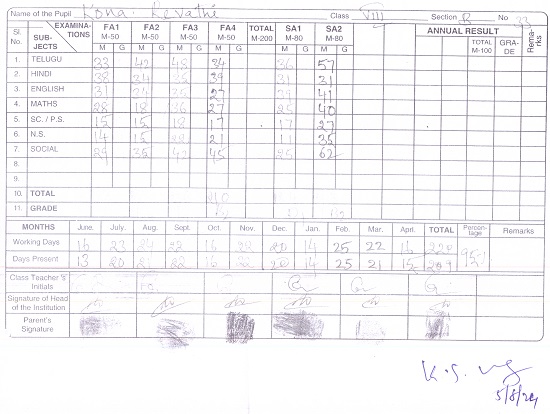 Name of the Pupil Kona. Revathi Class VIII Section B No 33
Sl. No. EXAMINATIONS SUBJECTS FA1 M-50 FA2 M-50 FA3 M-50 FA4 M-50 TOTAL M-200 SA1 M-80 SA2 M-80 ANNUAL RESULT TOTAL M-100 GRADE Remarks
M G M G M G M G M G M G
1. TELUGU 33 42 48 34 36 57
2. HINDI 38 34 39 31 31
3. ENGLISH 31 27 39 41
4. MATHS 28 18 36 27 40
5. SC. / P.S. 15 15 18 17 17 27
6. N.S. 14 15 21 11 35
7. SOCIAL 29 35 45 25 62
8.
9.
10. TOTAL
11. GRADE
MONTHS June. July. Aug. Sept. Oct. Nov. Dec. Jan. Feb. Mar. April. TOTAL Percentage Remarks
Working Days 16 23 24 22 16 20 14 25 22 16 220
Days Present 13 20 21 22 16 20 14 25 21 15 207
Class Teacher's Initials
Signature of Head of the Institution
Parent's Signature
5/8/24